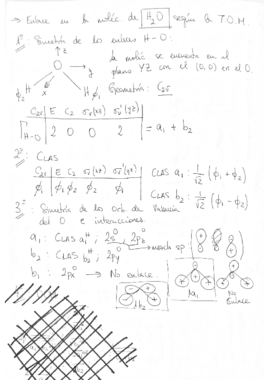 → Enlace en la moléc de H₂O según la T.O.M.
1º: Simetría de los enlaces H-O:
z
O
y
x
ϕ₂ H
H ϕ₁
la moléc. se encuentra en el
plano YZ con el (0,0) en el O.
Geometría: C₂ᵥ
C₂ᵥ | E C₂ σᵥ(xz) σᵥ'(yz)
Γ H-O | 2 0 0 2 = a₁ + b₂
2º: CLAS
C₂ᵥ | E C₂ σᵥ(xz) σᵥ'(yz)
ϕ₁ | ϕ₁ ϕ₂ ϕ₂ ϕ₁
CLAS a₁: 1/√2 (ϕ₁ + ϕ₂)
CLAS b₂: 1/√2 (ϕ₁ - ϕ₂)
3º: Simetría de los orb. de valencia
del O e interacciones.
a₁: CLAS a₁ᴴ, 2s⁰, 2pz⁰ → mezcla sp:
b₂: CLAS b₂ᴴ, 2py⁰
b₁: 2px⁰ → No enlace.
b₂
a₁
Enlace